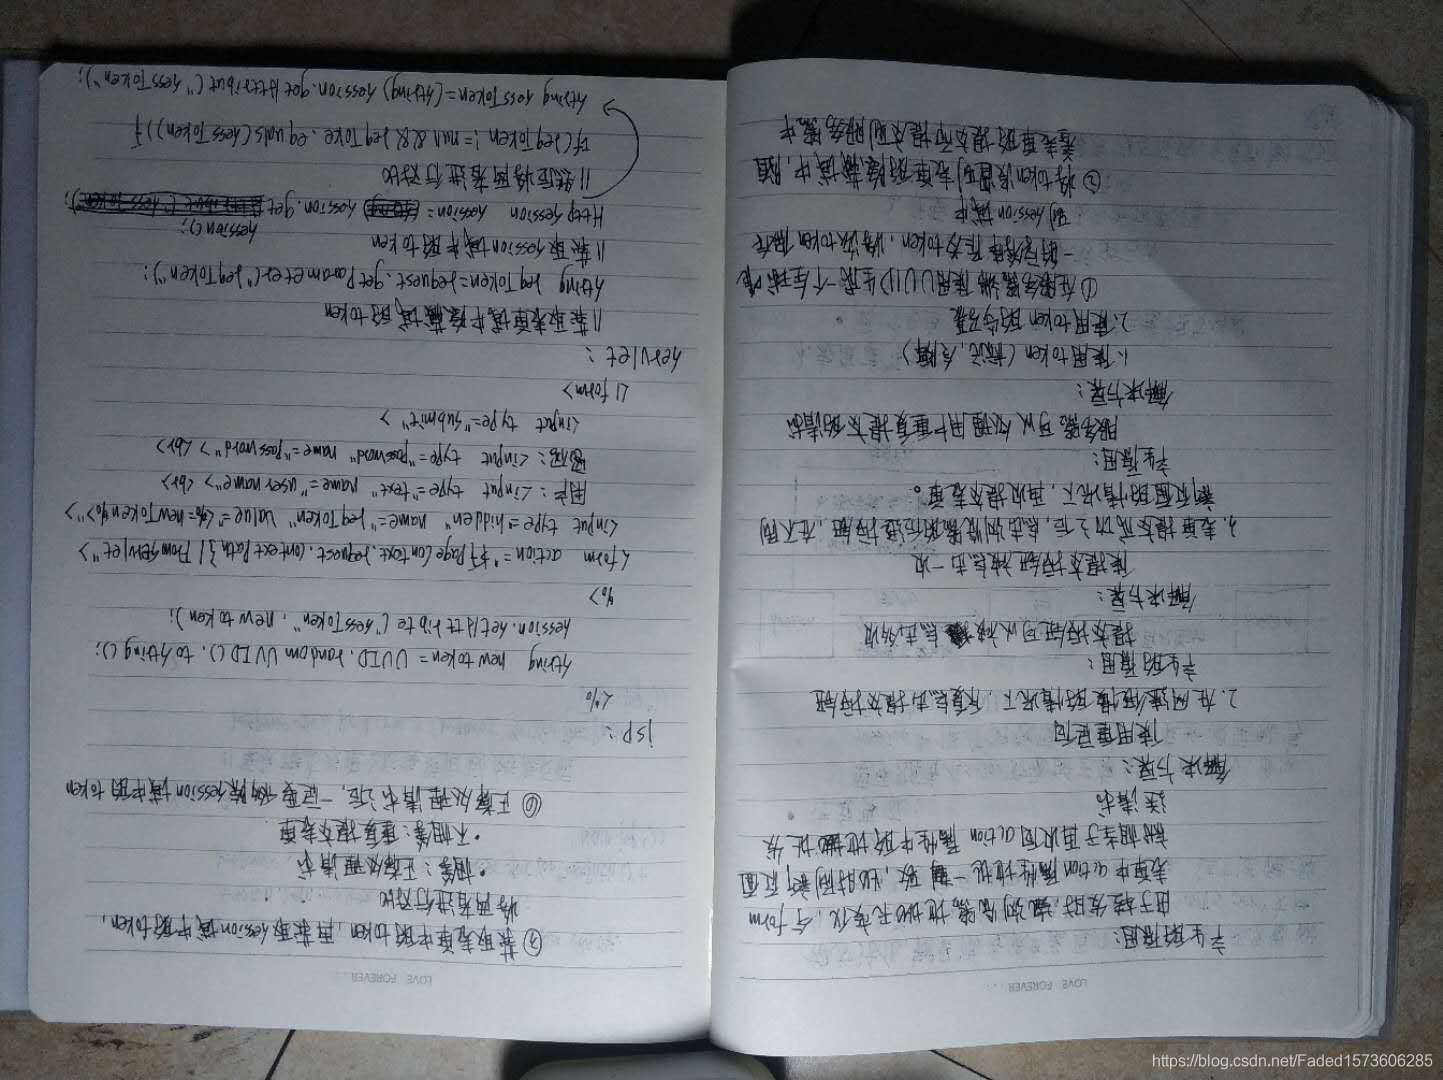 LOVE FOREVER
产生的原因：
由于转发时，浏览器地址不变化，与form
表单中action属性地址一致，此时刷新页面
就相当于再次向action属性中的地址发
送请求
解决方案：
使用重定向
2.在网速很慢的情况下，反复点击提交按钮
产生的原因：
提交按钮可以被点击多次
解决方案：
使提交按钮被点击一次
3.表单提交成功之后，点击浏览器后退按钮，在不刷
新页面的情况下，再次提交表单。
产生原因：
服务器可以处理用户重复提交的请求
解决方案：
1.使用token（标记，令牌）
2.使用token的步骤
①在服务器端使用UUID生成一个全球唯
一的字符串作为token，将该token保存
到session域中
②将token设置到表单的隐藏域中，随
着表单的提交而提交到服务器中
LOVE FOREVER
③获取表单中的token，再获取session域中的token，
将两者进行对比
• 相等：正常处理请求
• 不相等：重复提交表单
④正常处理请求之后，一定要移除session域中的token
jsp：
<%
String newtoken = UUID.randomUUID().toString();
session.setAttribute("sessToken", newtoken);
%>
<form action="${pageContext.request.contextPath}/FromServlet">
<input type=hidden" name="reqToken" value="<%=newToken%>">
用户：<input type="text" name="username"> <br>
密码：<input type="password" name="password"> <br>
<input type="submit">
</form>
servlet：
//获取表单域中隐藏域的token
String reqToken=request.getParameter("reqToken");
//获取session域中的token
HttpSession session = session.get
session();
//然后将两者进行对比
if(reqToken != null && reqToke.equals(sessToken)){
String sessToken=(String) session.getAttribut("sessToken");
https://blog.csdn.net/Faded1573606285